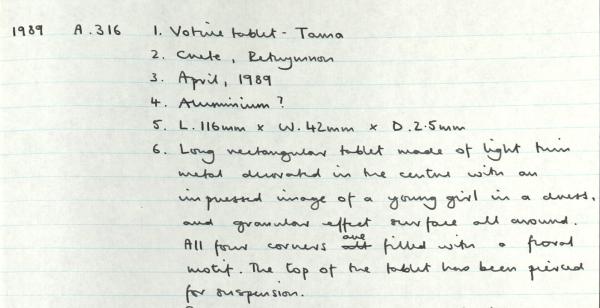 1989 A.316 1. Votive tablet - Tama
2. Crete, Rethymnon
3. April, 1989
4. Aluminium?
5. L. 116mm x W. 42mm x D. 2.5mm
6. Long rectangular tablet made of light thin
metal decorated in the centre with an
impressed image of a young girl in a dress,
and granular effect surface all around.
All four corners are filled with a floral
motif. The top of the tablet has been pierced
for suspension.